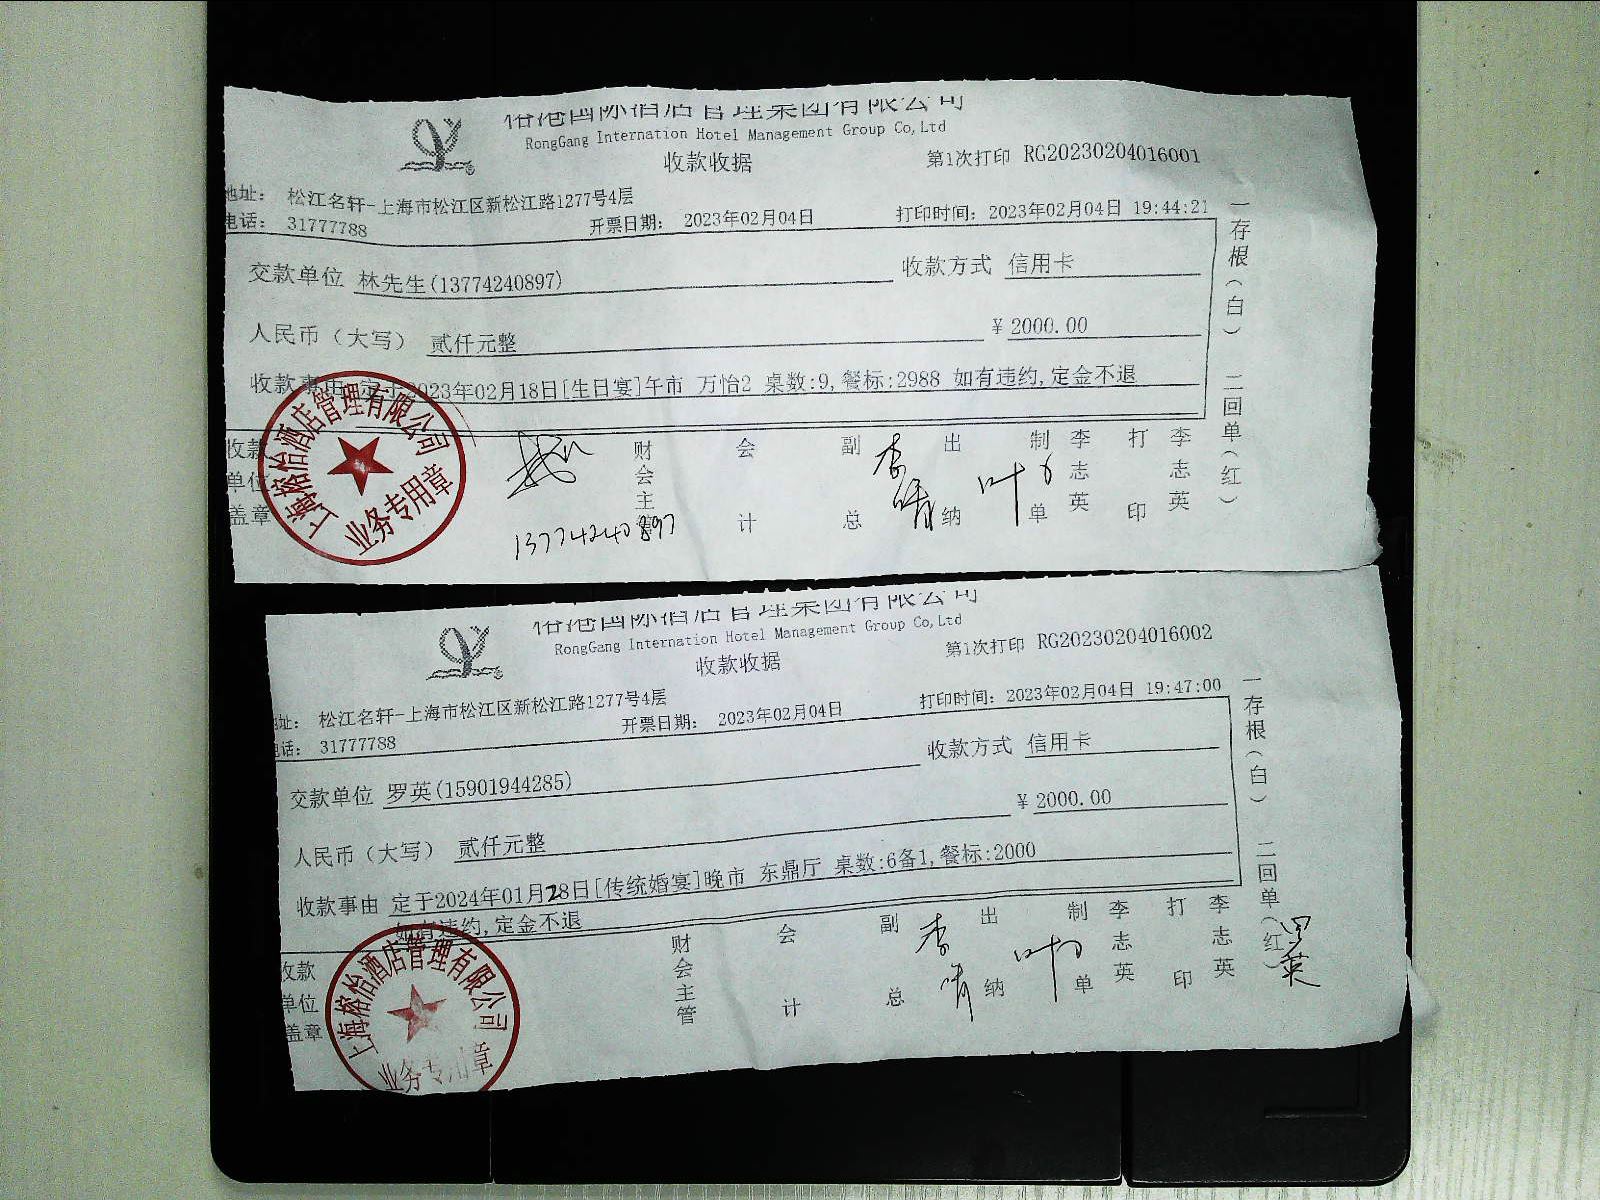 榕港国际酒店管理集团有限公司
RongGang Internation Hotel Management Group Co,Ltd
收款收据
第1次打印 RG20230204016001
地址： 松江名轩-上海市松江区新松江路1277号4层
电话： 31777788
开票日期： 2023年02月04日
打印时间：2023年02月04日 19:44:21
交款单位 林先生(13774240897)
收款方式 信用卡
人民币（大写） 贰仟元整
¥ 2000.00
收款事由 定于2023年02月18日[生日宴]午市 万怡2 桌数:9,餐标:2988 如有违约,定金不退
收款单位盖章
上海榕怡酒店管理有限公司
业务专用章
13774240897
财会主管
会计
副总
李晴
出纳
叶
制单
李志英
打印
李志英
一存根（白） 二回单（红）
榕港国际酒店管理集团有限公司
RongGang Internation Hotel Management Group Co,Ltd
收款收据
第1次打印 RG20230204016002
地址： 松江名轩-上海市松江区新松江路1277号4层
电话： 31777788
开票日期： 2023年02月04日
打印时间：2023年02月04日 19:47:00
交款单位 罗英(15901944285)
收款方式 信用卡
人民币（大写） 贰仟元整
¥ 2000.00
收款事由 定于2024年01月28日[传统婚宴]晚市 东鼎厅 桌数:6备1,餐标:2000
如有违约,定金不退
收款单位盖章
上海榕怡酒店管理有限公司
业务专用章
财会主管
会计
副总
李晴
出纳
叶
制单
李志英
打印
李志英
一存根（白） 二回单（红）
罗英